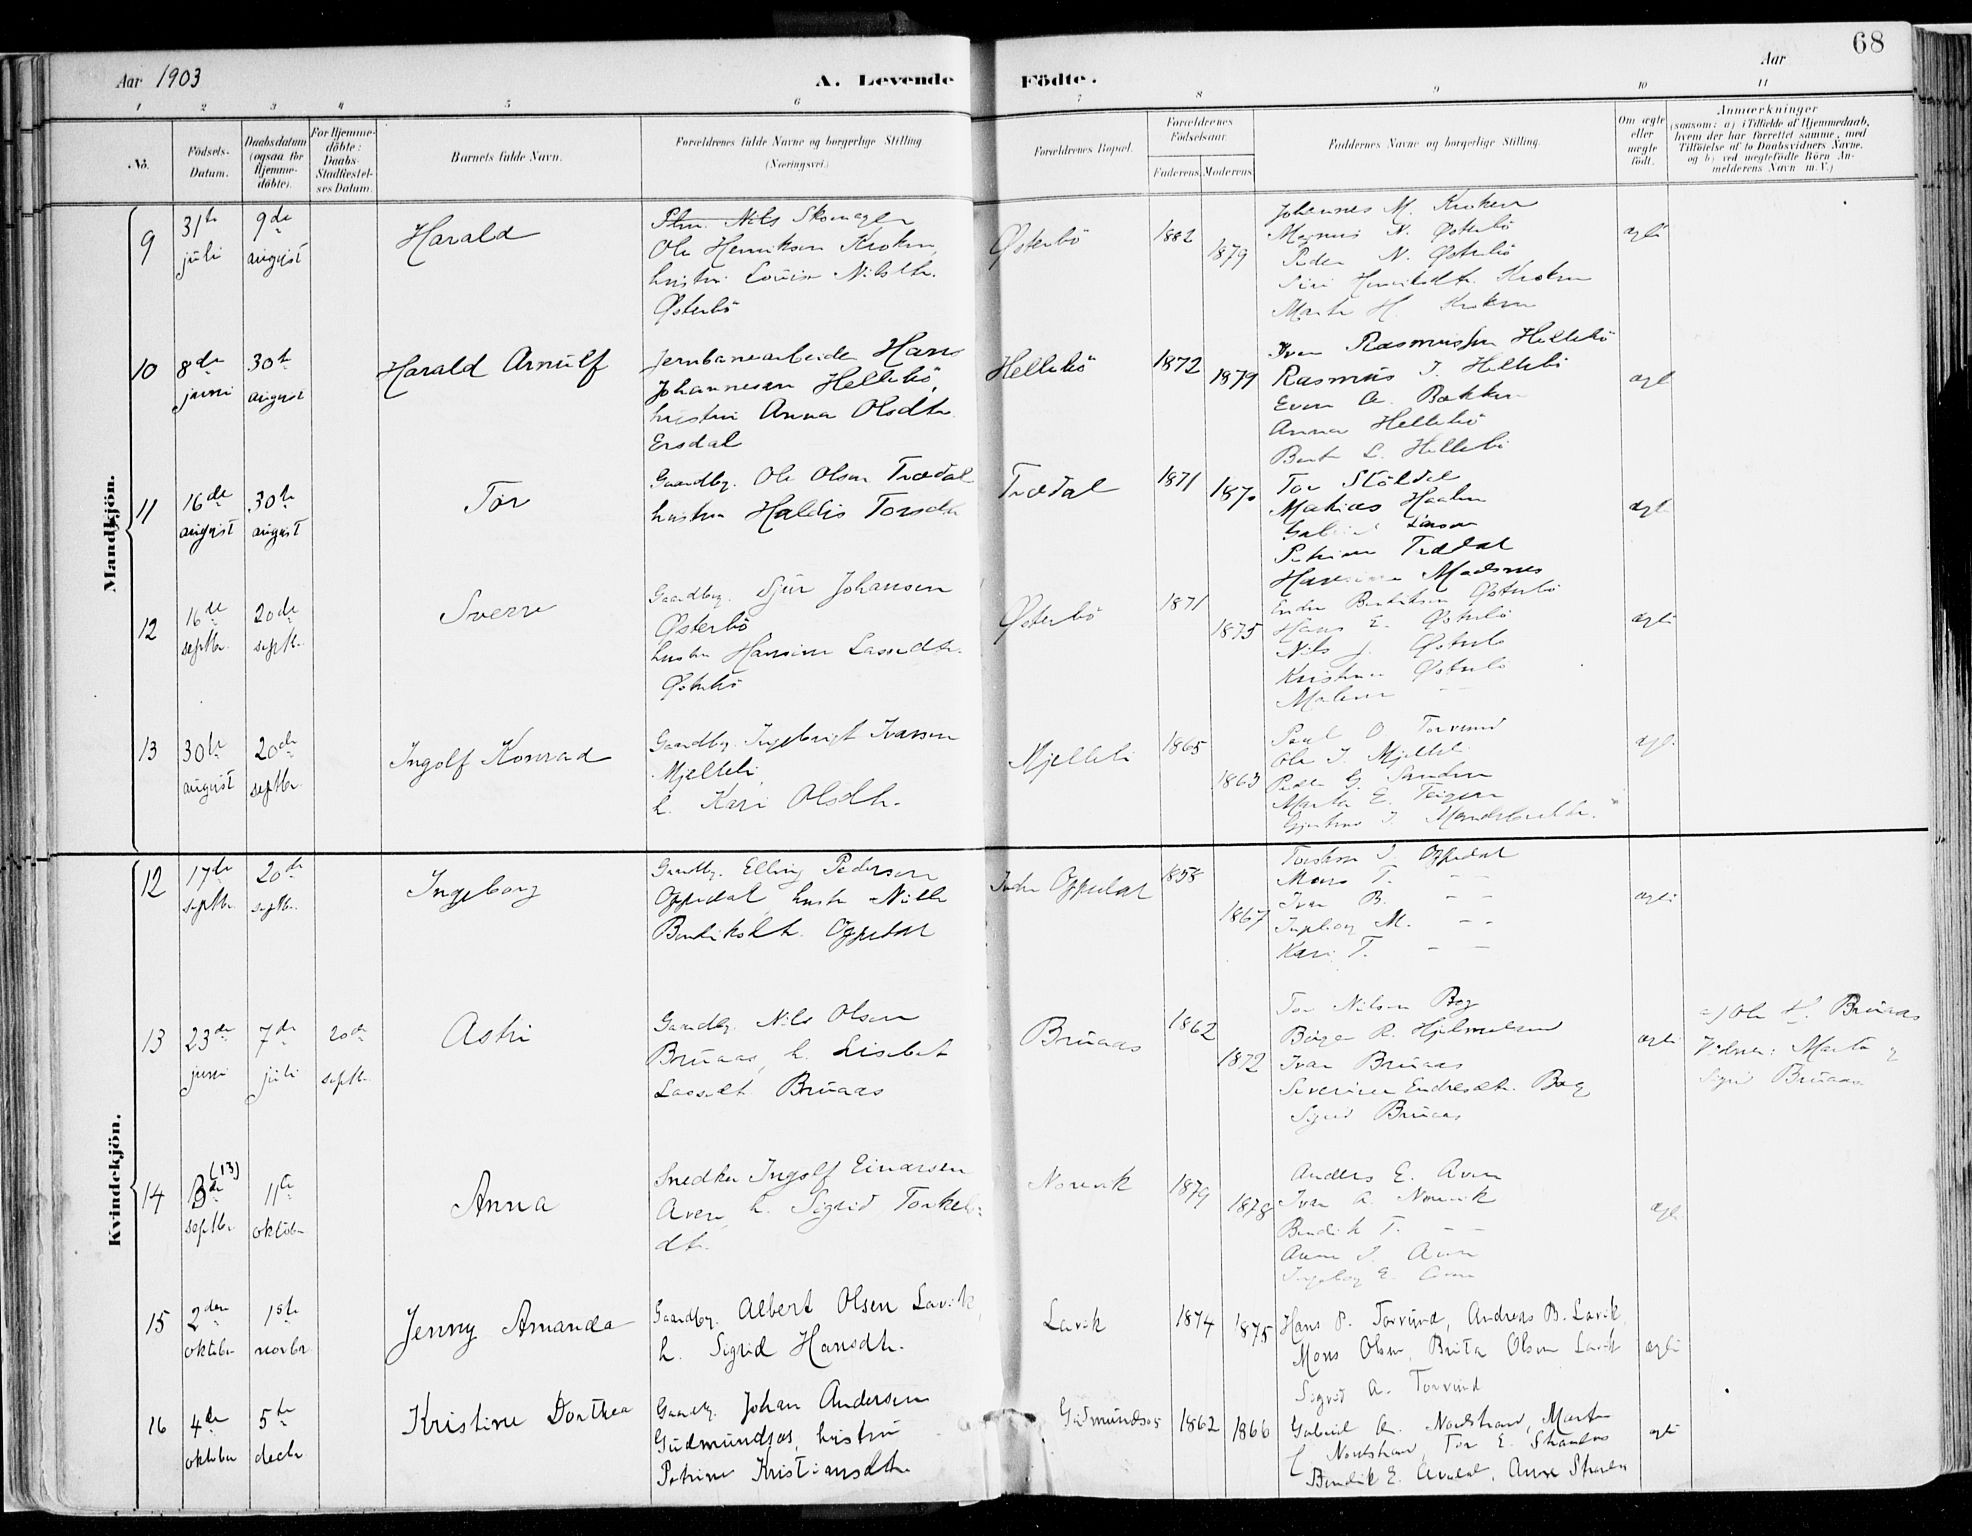 68
Aar 1903
A. Levende Födte.
Aar
1 2 3 4 5 6 7 8 9 10 11
No.
Födsels-Datum.
Daabsdatum (ogsaa for Hjemme-döbte).
For Hjemme-döbte: Daabs-Stadfæstel-ses Datum.
Barnets fulde Navn.
Forældrenes fulde Navne og borgerlige Stilling (Næringsvei.)
Forældrenes Bopæl.
Forældrenes Födselsaar.
Faderens. Moderens.
Faddernes Navne og borgerlige Stilling.
Om ægte eller uægte födt.
Anmærkninger
(saasom: a) i Tilfælde af Hjemmedaab,
hvem der har forrettet samme, med
Tilföielse af to Daabsvidners Navne,
og b) ved uægtefödte Börn An-
melderens Navn m. V.)
Mandkjön.
9
31te juli
9de august
Harald
Nils Skomager
Ole Henriksen Kroken,
hustru Louise Nilsdtr.
Østerbö
Østerbö
1882
1879
Johannes M. Kroken
Magnus N. Østerbö
Peder N. Østerbö
Siri Henriksdtr. Kroken
Marta H. Kroken
ægte
10
8de juni
30te august
Harald Arnulf
Jernbanearbeider Hans
Johannesen Hellebö,
hustru Anna Olsdtr.
Ersdal
Hellebö
1872
1879
Ivar Rasmussen Hellebö
Rasmus J. Hellebö
Even A. Bakken
Anna Hellebö
Berte L. Hellebö
ægte
11
16de august
30te august
Tor
Gaardbr. Ole Olsen Trædal
hustru Haldis Torsdtr
Trædal
1871
1870
Tor Stöldal
Matias
Larsen
Petrine Trædal
Madsnes
ægte
12
16de septbr.
20de septbr.
Sverre
Gaardbr. Sjur Johansen
Østerbö
hustru Hansine Lassedtr.
Østerbö
Østerbö
1871
1875
Endre Bendiksen Østerbö
Hans E. Østerbö
Nils J. Østerbö
Kristense Østerbö
Malene — —
ægte
13
30te august
20de septbr.
Ingolf Konrad
Gaardbr. Ingebrigt Ivarsen
Mjelteli,
h. Kari Olsdtr.
Mjelteli
1865
1863
Paul O. Torvund
Ole I. Mjelteli
Peder G. Sanden
Marta E. Teigen
ægte
Kvindekjön.
12
17de septbr.
20de septbr.
Ingeborg
Gaardbr. Elling Pedersen
Oppedal hustr. Nille
Bendiksdtr. Oppedal
Indre Oppedal
1858
1867
Torstein I. Oppedal
Mons T. — —
Ivar B. — —
Ingeborg M. — —
Kari T. — —
ægte
13
23de juni
7de juli
20de septbr.
Astri
Gaardbr. Nils Olsen
Bruaas, h. Lisebet
Lassedt Bruaas
Bruaas
1862
1872
Tor Nilsen Bog
Börge R. Hjelmeland
Ivar Bruaas
Severine Endresdtr. Bog
Sigrid Bruaas
ægte
Ole Bruaas
Vidner: Marta og
Sigrid Bruaas
14
(13)
3de septbr
11te oktober
Anna
Snedker Ingolf Einarsen
Aven, h. Sigrid Torkels-
dtr.
Norevik
1879
1878
Anders E. Aven
Ivar A. Norevik
Bendik T. — —
Anne I. Aven
Ingeborg E. Aven
ægte
15
2den oktober
1ste novbr.
Jenny Amanda
Gaardbr. Albert Olsen Lavik,
h. Sigrid Hansdtr.
Lavik
1874
1875
Hans P. Torvund, Andreas B. Lavik,
Mons Olsen, Brita Olsen Lavik
Sigrid A. Torvund
ægte
16
4de oktober
5te decbr
Kristine Dorthea
Gaardbr. Johan Andersen
Gudmundsos, hustru
Petrine Kristiansdtr.
Gudmundsos
1862
1866
Gabriel A. Nordstrand, Marta
Nordstrand, Tor E. Strandos
Bendik E. Anne
ægte